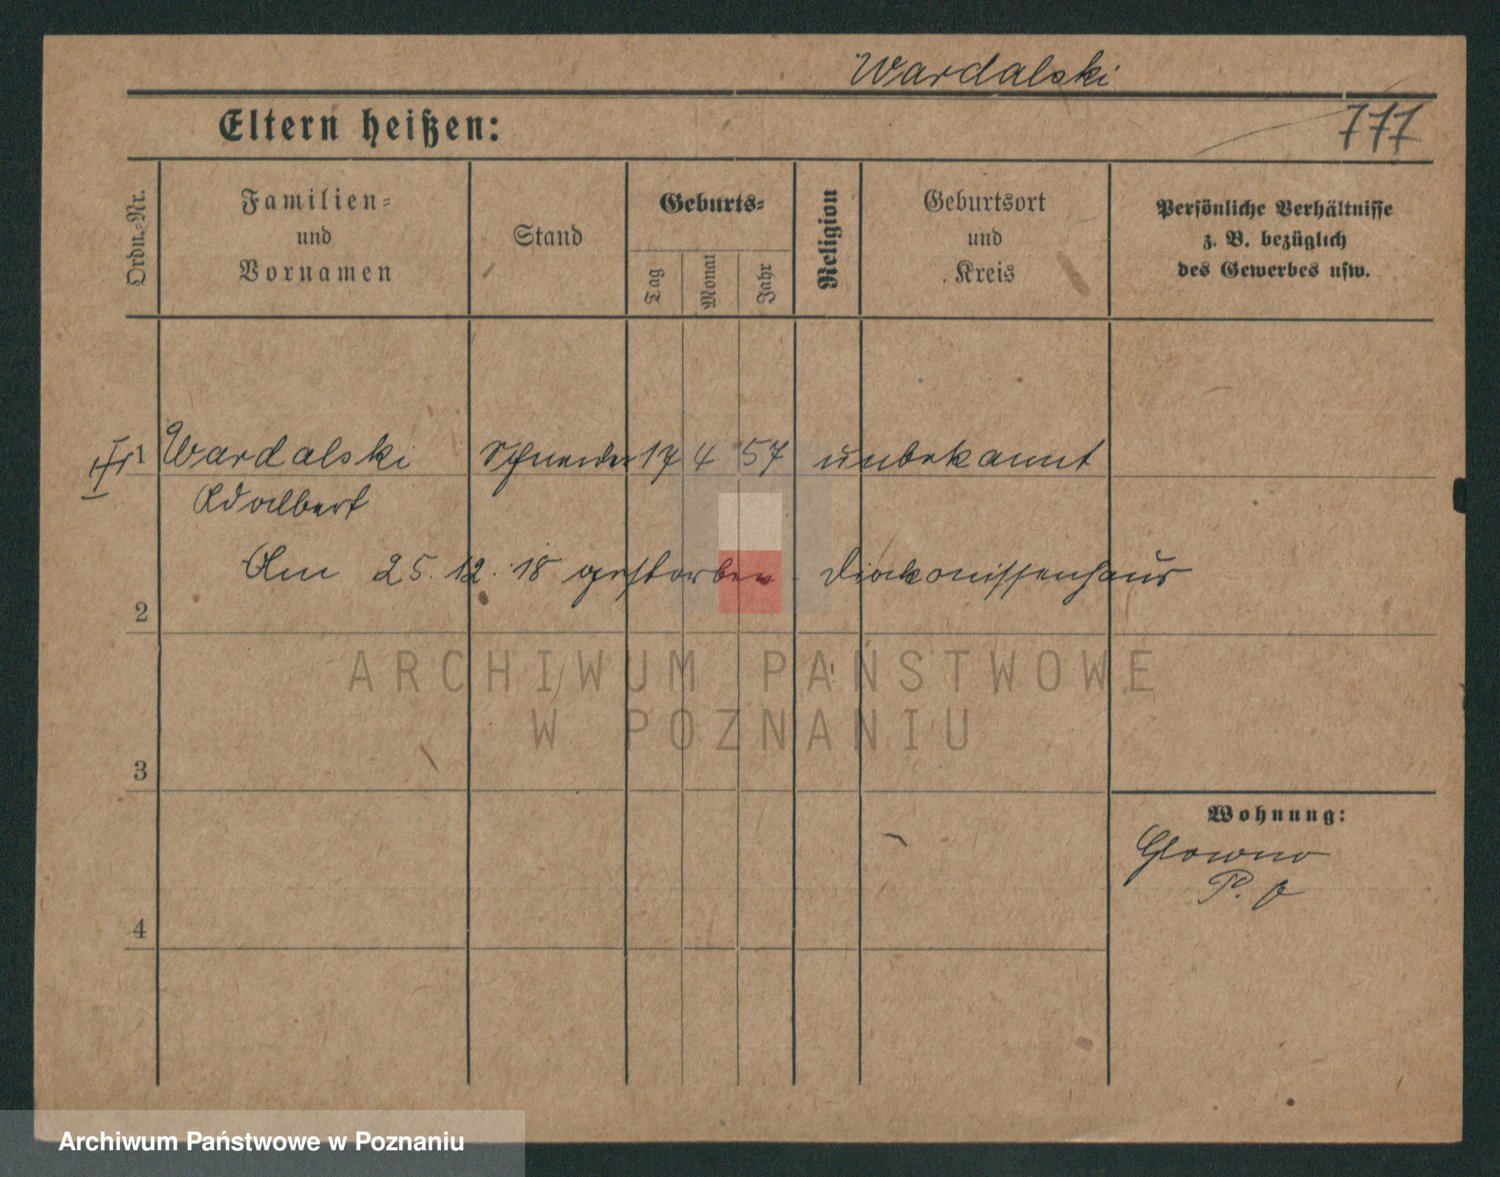 Wardalski
Eltern heißen:
777
Ordn.-Nr.
Familien-
und
Vornamen
Stand
Geburts-
Tag
Monat
Jahr
Religion
Geburtsort
und
Kreis
Persönliche Verhältnisse
z. B. bezüglich
des Gewerbes usw.
1 Wardalski Schneider 17 4 57 unbekannt
Adalbert
Am 25.12.18 gestorben. Diakonissenhaus
2
ARCHIWUM PAŃSTWOWE
W POZNANIU
3
Wohnung:
Glowno
4
Archiwum Państwowe w Poznaniu